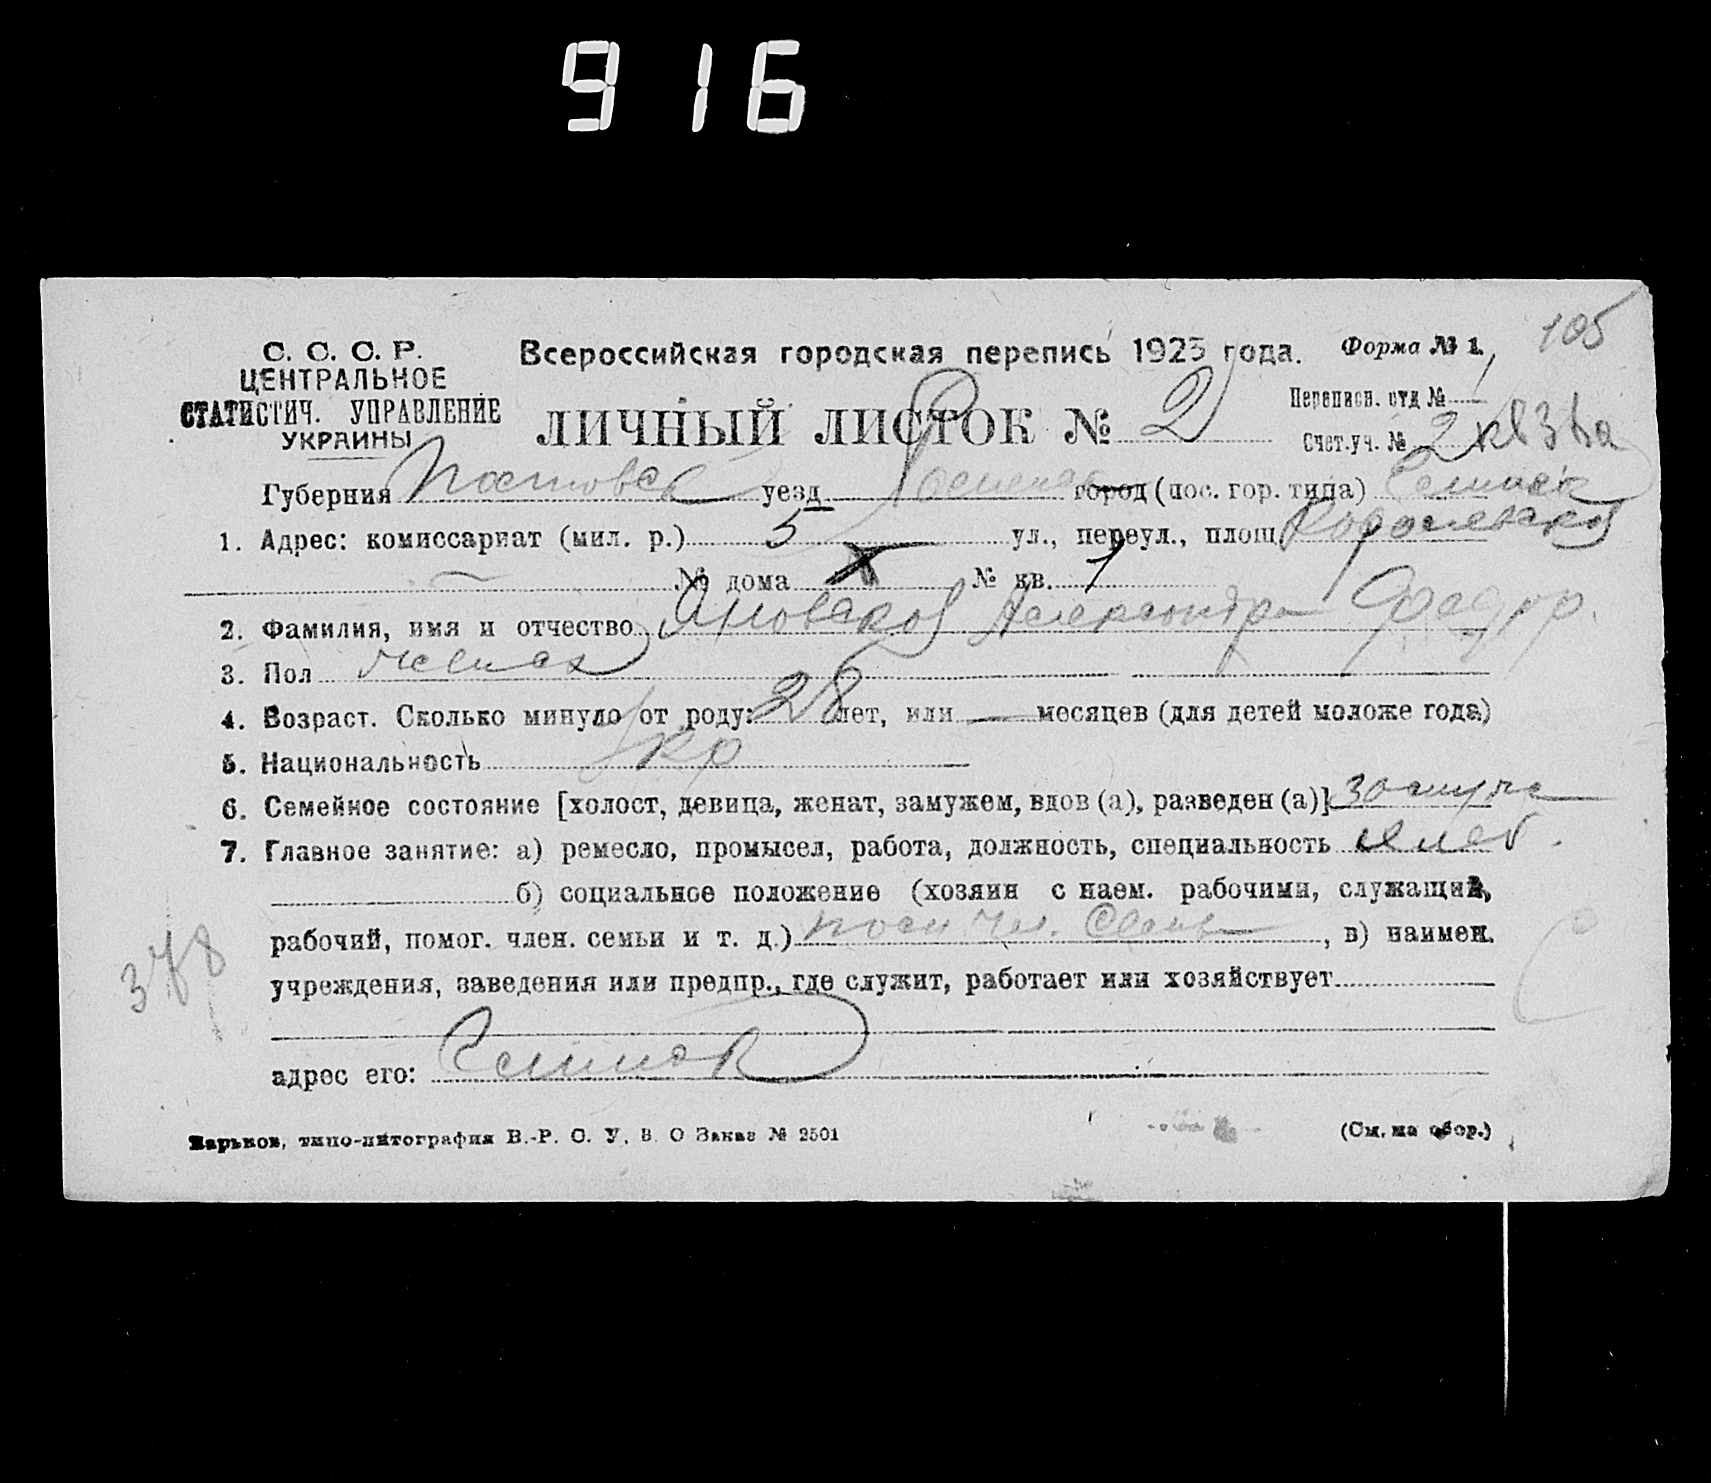 916
105
С. С. С. Р.
ЦЕНТРАЛЬНОЕ
СТАТИСТИЧ. УПРАВЛЕНИЕ
УКРАИНЫ
Всероссийская городская перепись 1923 года.
Форма № 1.
ЛИЧНЫЙ ЛИСТОК № 2
Переписн. отд № 1
Счет.уч. № 2
Губерния уезд город (пос. гор. типа)
1. Адрес: комиссариат (мил. р.) 5 ул., переул., площ.
№ дома № кв. 1
2. Фамилия, имя и отчество Яновская Александра Федор.
3. Пол женск
4. Возраст. Сколько минуло от роду: 28 лет, или — месяцев (для детей моложе года)
5. Национальность Укр
6. Семейное состояние [холост, девица, женат, замужем, вдов (а), разведен (а)] замуж
7. Главное занятие: а) ремесло, промысел, работа, должность, специальность
б) социальное положение (хозяин с наем. рабочими, служащий,
рабочий, помог. член. семьи и т. д.) , в) наимен.
учреждения, заведения или предпр., где служит, работает или хозяйствует
адрес его:
378
Харьков, типо-литография В.-Р. С. У. В. О Заказ № 2501
(См. на обор.)